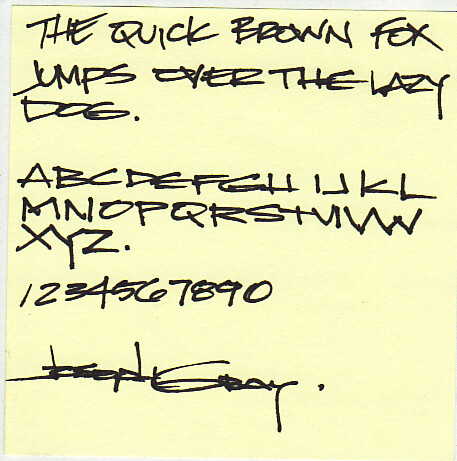 THE QUICK BROWN FOX
JUMPS OVER THE LAZY
DOG.
ABCDEFGH IJKL
MNOPQRSTUVW
XYZ.
1234567890
Joseph Gray.